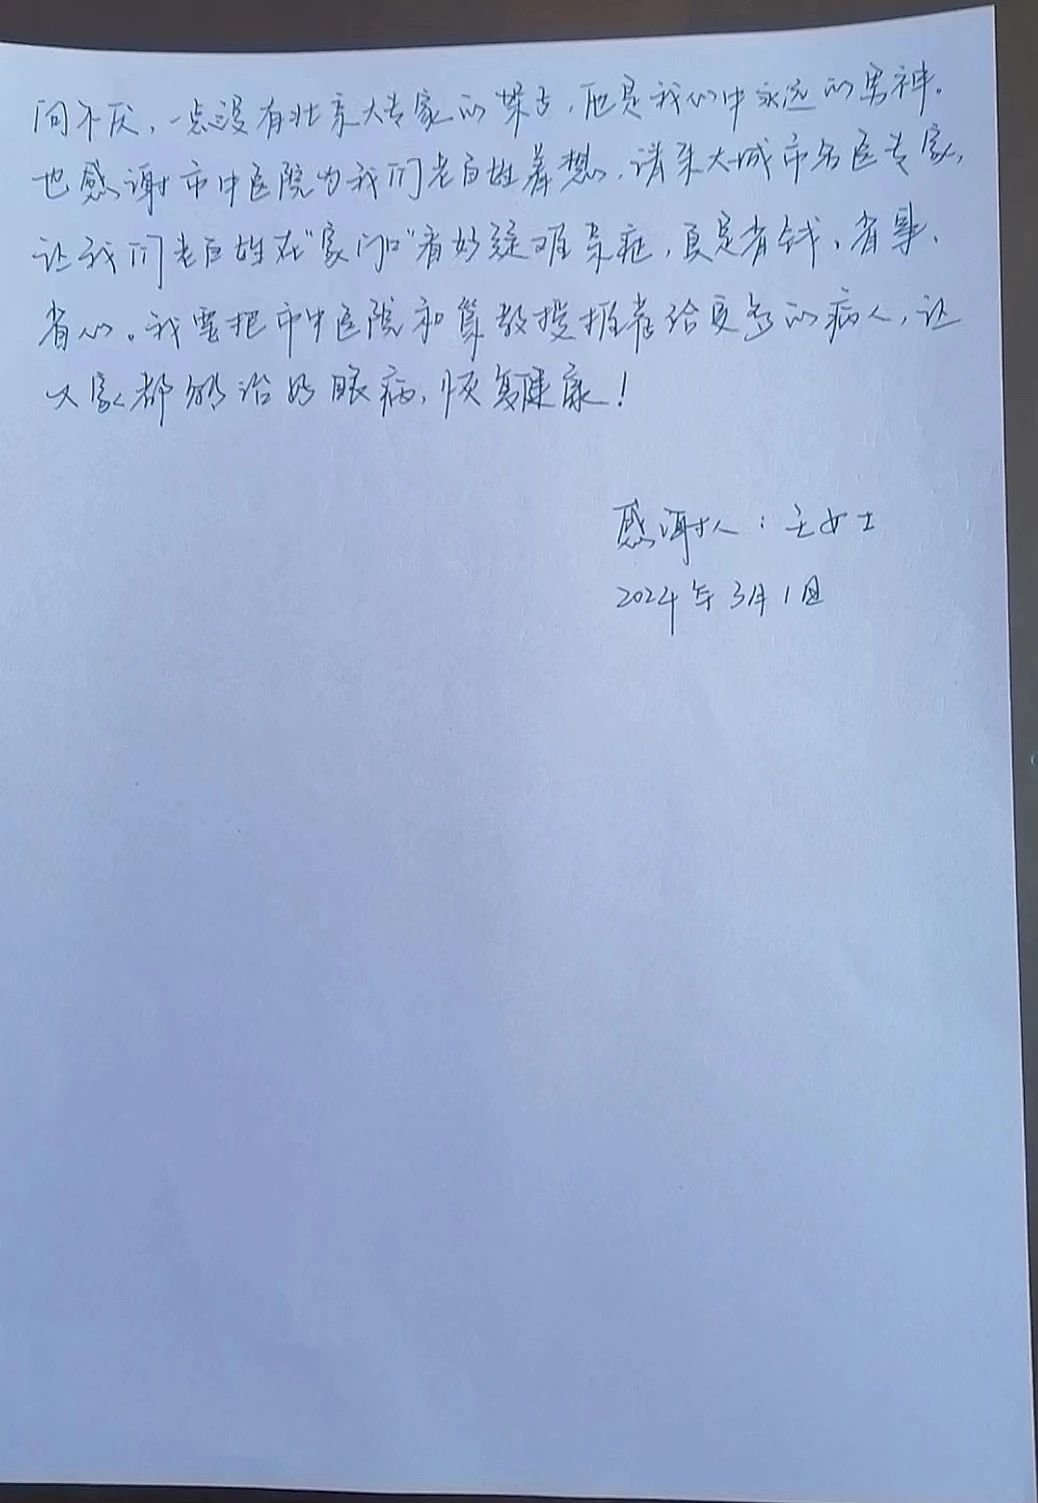 问不厌，一点没有北京大专家的架子，他是我们心中永远的男神。
也感谢市中医院为我们老百姓着想，请来大城市名医专家，
让我们老百姓在"家门口"看好疑难杂症，真是省钱、省事、
省心。我要把市中医院和 教授推荐给更多的病人，让
大家都能治好眼病，恢复健康！
感谢人：王女士
2024年3月1日